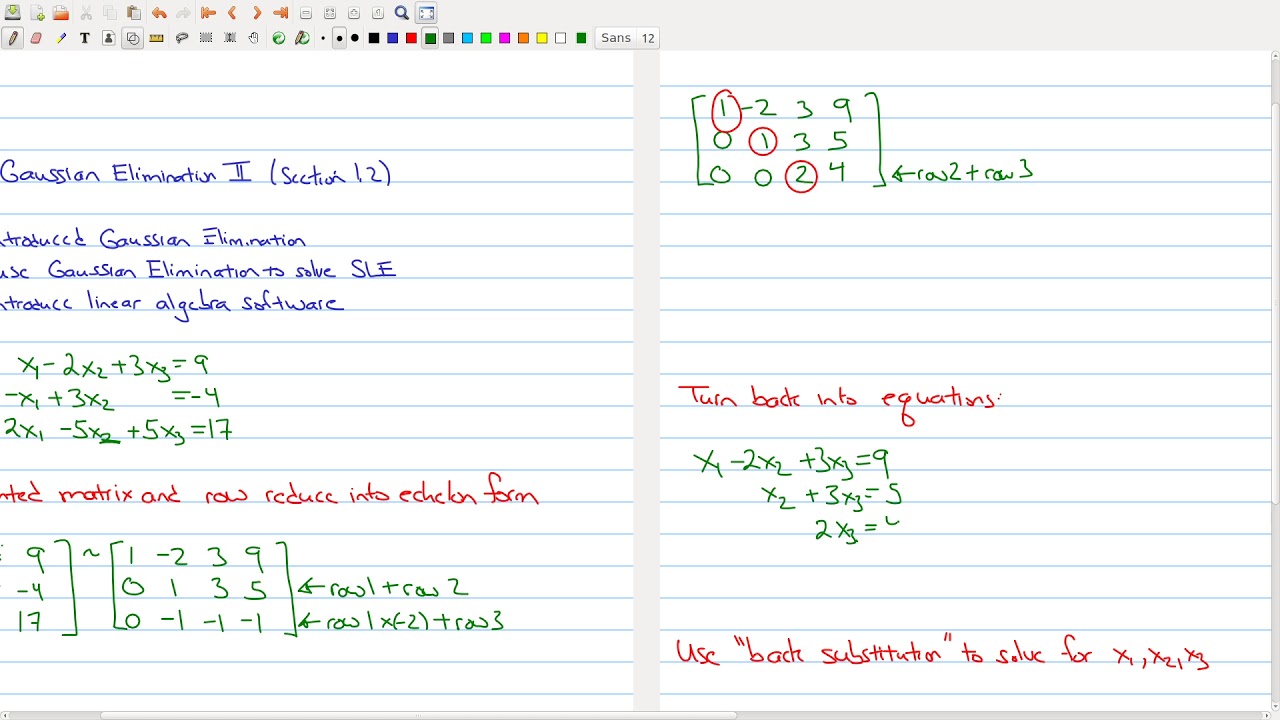 Sans 12
Gaussian Elimination II (Section 1.2)
ntroduced Gaussian Elimination
use Gaussian Elimination to solve SLE
ntroduce linear algebra software
x₁ - 2x₂ + 3x₃ = 9
-x₁ + 3x₂ = -4
2x₁ - 5x₂ + 5x₃ = 17
nted matrix and row reduce into echelon form
9 ~ 1 -2 3 9
-4 0 1 3 5 ← row1 + row 2
17 0 -1 -1 -1 ← row1x(-2) + row3
1 -2 3 9
0 1 3 5
0 0 2 4 ← row2 + row3
Turn back into equations:
x₁ - 2x₂ + 3x₃ = 9
x₂ + 3x₃ = 5
2x₃ =
Use "back substitution" to solve for x₁, x₂, x₃